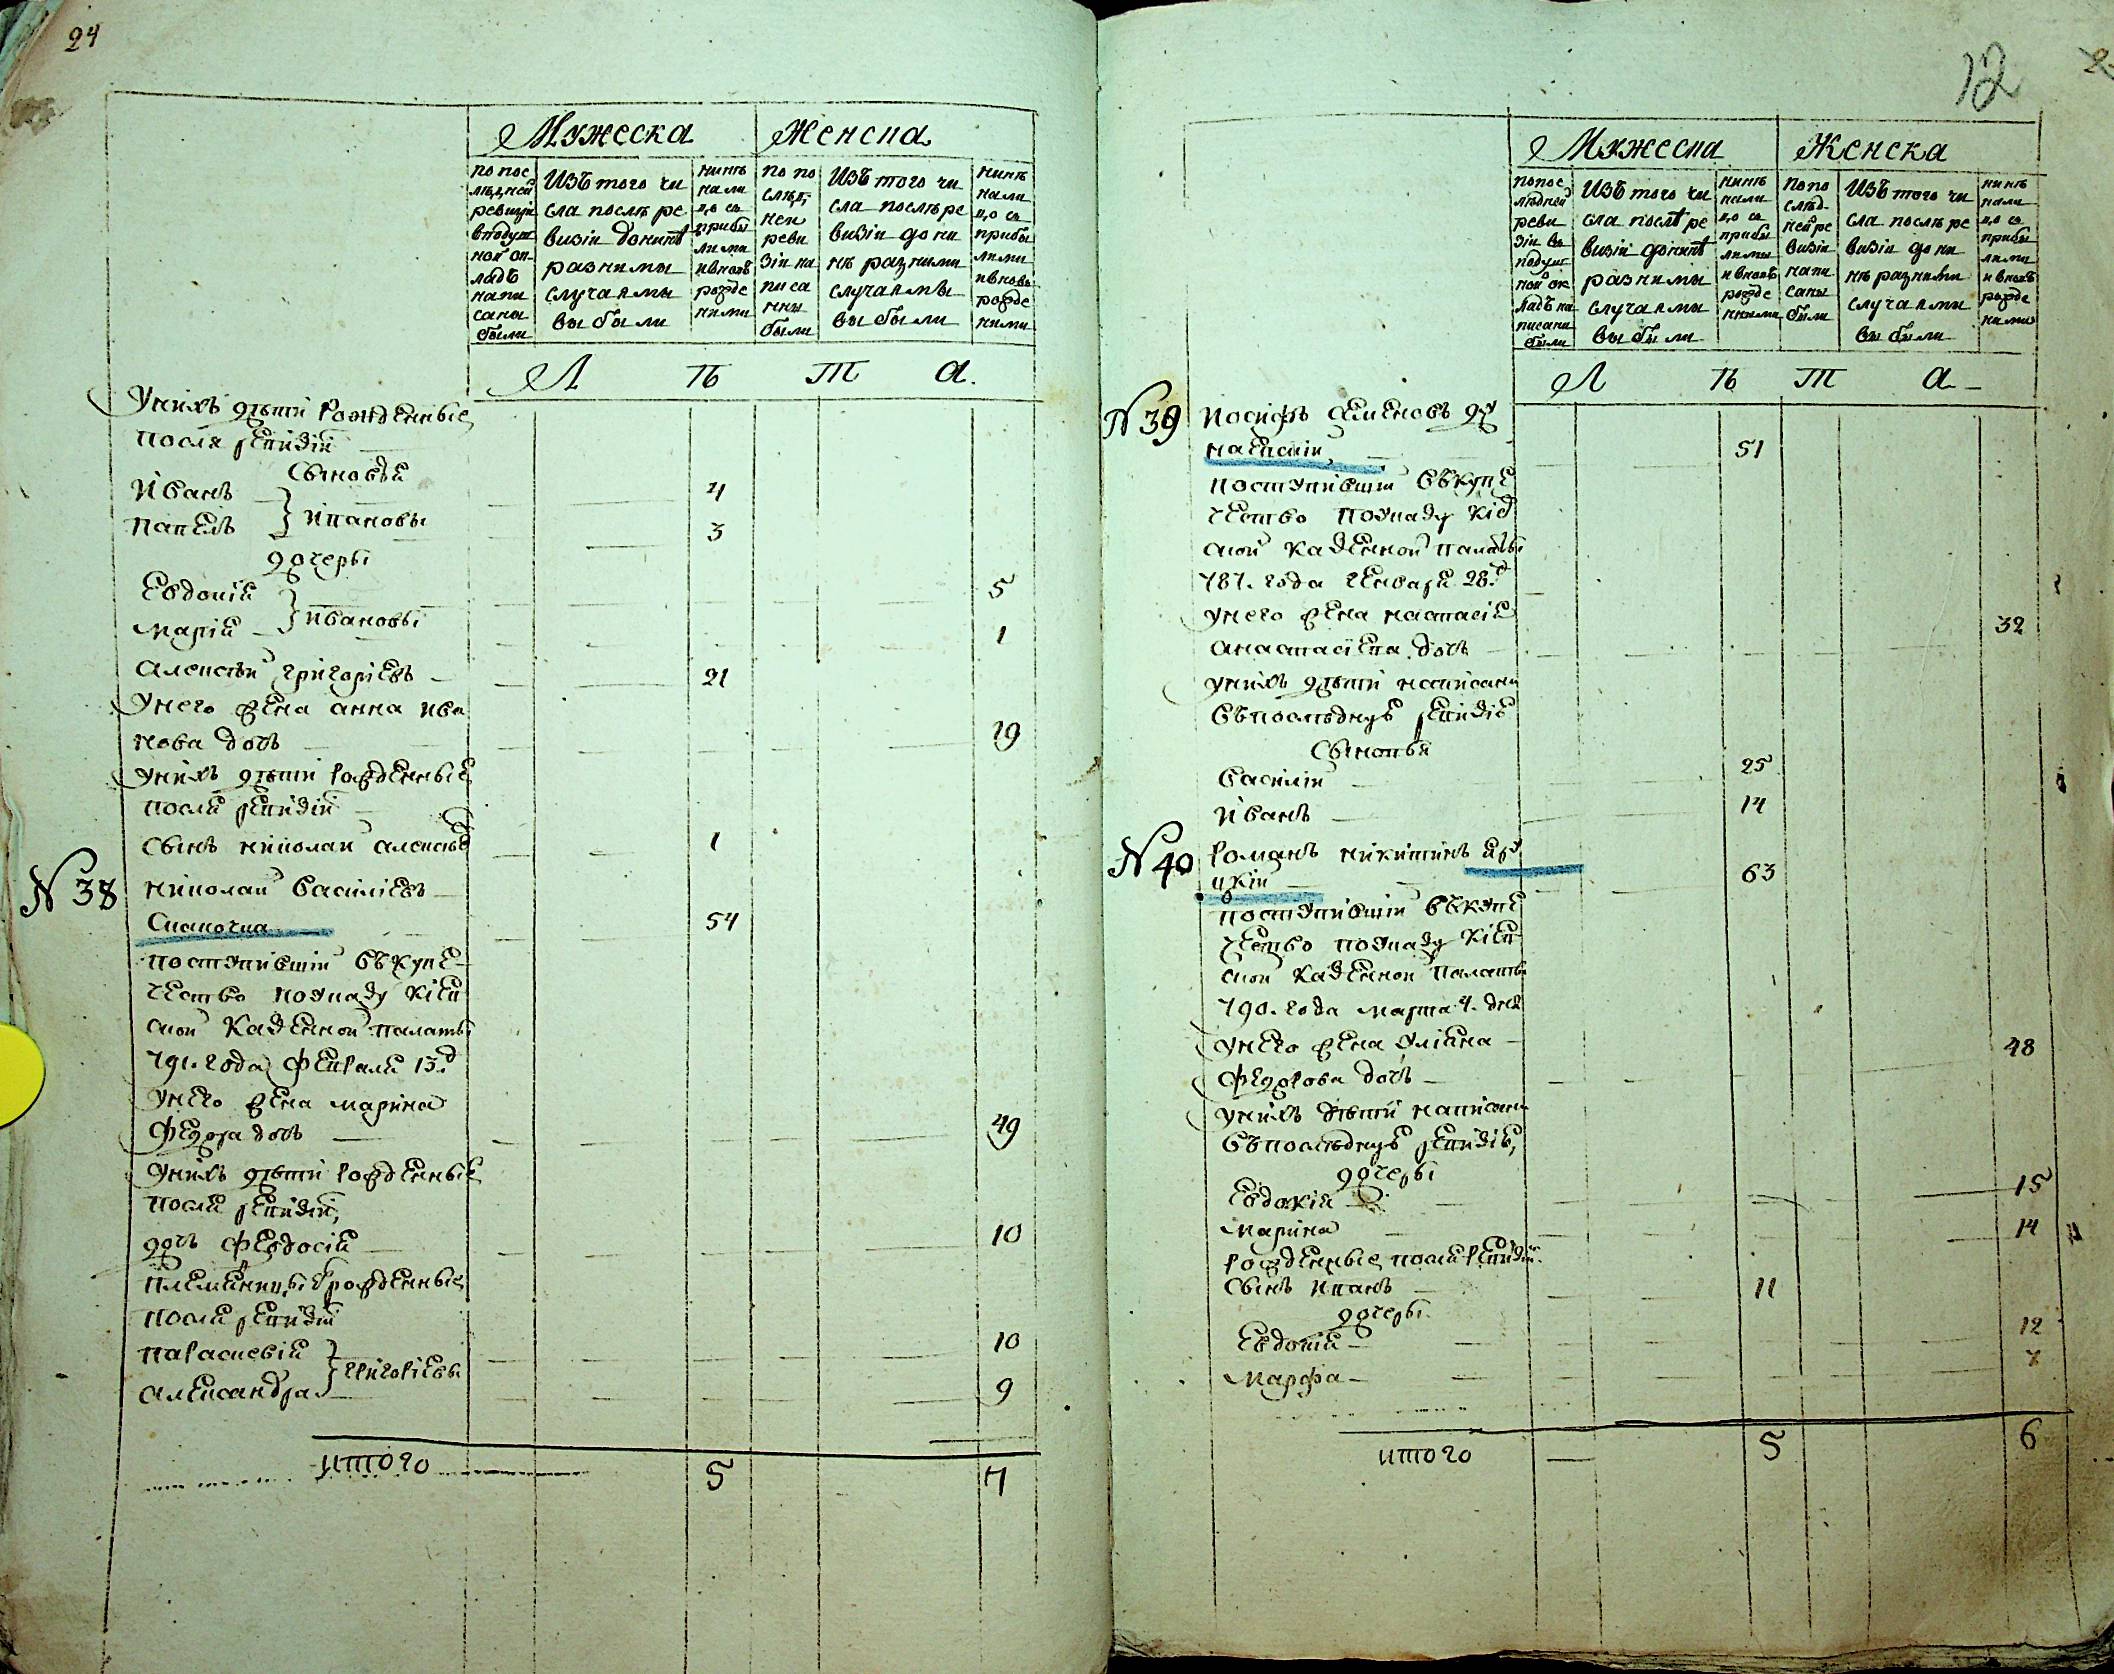 24
Мужеска Женска
по пос
лѣдней
ревизіи
вподуш
ной ок
ладъ
напи
саны
были
Изъ того чи
сла послѣ ре
визіи донинѣ
разними
случаями
выбыли
нинѣ
нали
цо съ
прибы
лими
ивновъ
рожде
ними
по по
слѣд
ней
реви
зіи на
писа
ны
были
Изъ того чи
сла послѣ ре
визіи дони
нѣ разними
случаямы
выбыли
нинѣ
нали
цо съ
прибы
лими
ивновь
рожде
ними
Л Ѣ Т А.
Унихъ дѣти рожденные
после ревизіи
Сыновья
Иванъ 4
Павелъ } Ивановы 3
дочеры
Евдокія 5
Марія } Ивановы 1
Алексѣй Григоріевъ 21
Унего жена анна ива
нова дочь 19
Унихъ дѣти рожденные
посля ревизіи
Сынъ николай алексѣев 1
№ 38 николай Василіевъ
Скапочка 54
поступившій въкупе
чество поуказу Кіев
ской Казенной палаты
791. года Февраля 13. д
Унего жена марина
Федора дочь 49
Унихъ дѣти рожденные
посля ревизіи,
дочь Федосія 10
племяницы рожденные
посля ревизіи
параскевія 10
александра } Григоріевы 9
итого 5 7
12
Мужеска Женска
попос
лѣдней
реви
зіи въ
подуш
ной ок
ладъ на
писани
были
Изъ того чи
сла послѣ ре
визіи донинѣ
разнимы
случаямы
выбыли
нинѣ
нали
цо съ
прибы
лимы
ивновъ
рожде
нними
попо
слѣд
ней ре
визіи
напи
саны
были
Изъ того чи
сла послѣ ре
визіи дони
нѣ разними
случаями
выбыли
нинѣ
нали
цо съ
прибы
лими
ивновъ
рожде
ними
Л Ѣ Т А
№ 39 Иосифъ Семеновъ ду
наевскій 51
поступившій въкупе
чество поуказу Кіев
ской Казенной палаты
787. года Генваря 28. д
унего жена настасія
анастасіева дочь 32
унихъ дѣти написани
въпослѣднуѣ ревизіе
Сыновья
Василій 25
Иванъ 14
№ 40 Романъ никитинъ
цкій 63
поступившій въкупе
чество поуказу Кіев
ской Казенной Палаты
790. года марта 4. дня
унего жена Уліяна
Федорова дочь 48
унихъ дѣти написани
въпослѣднуѣ ревизіѣ,
дочеры
Евдокія 15
Марина 14
рожденные посля ревизіи.
Сынъ Иванъ 11
дочеры
Евдокія 12
Марфа 7
итого 5 6